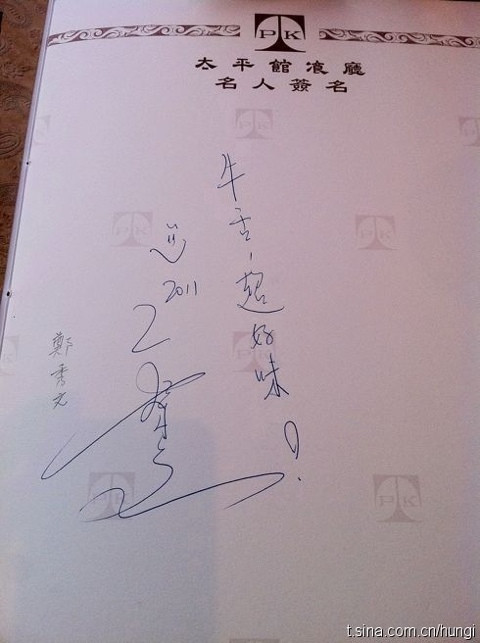 PTK
太平館飡廳
名人簽名
牛舌,超好味!
2011
鄭秀文
t.sina.com.cn/hungi